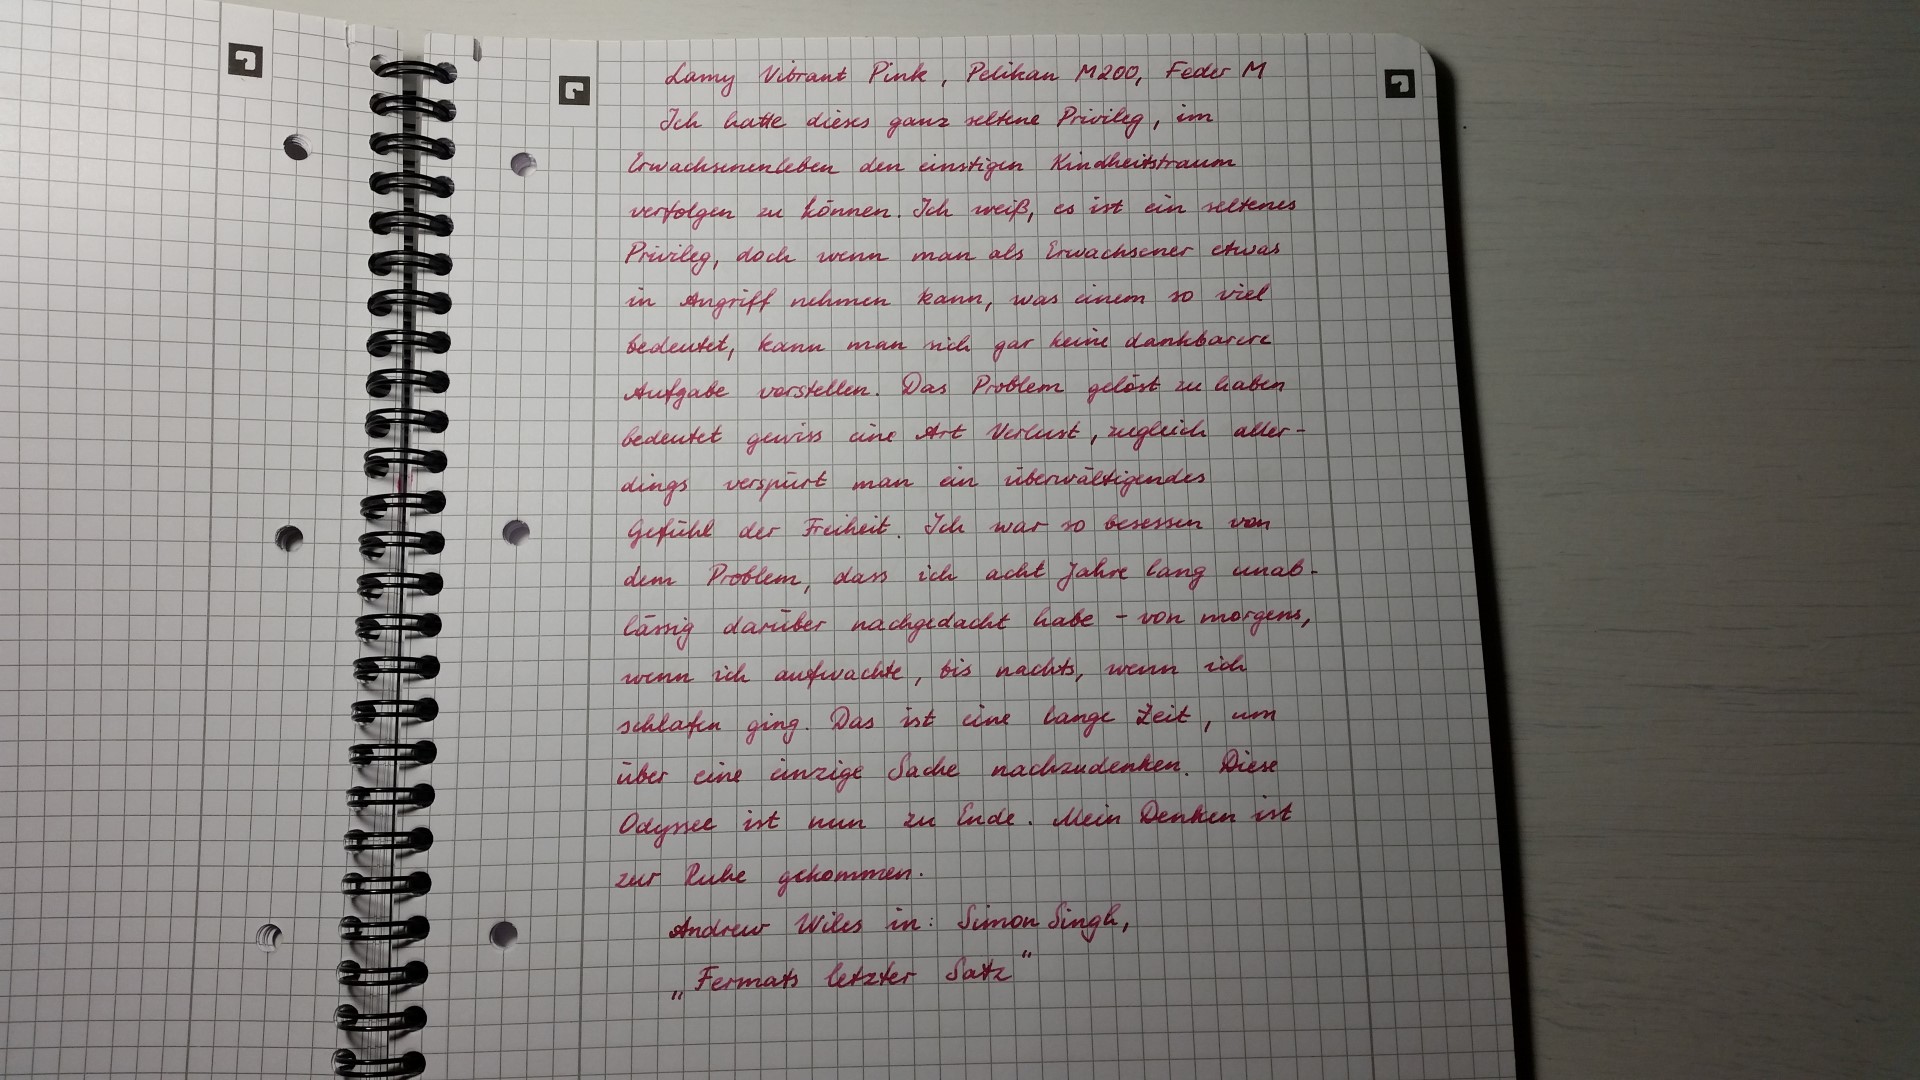 Lamy Vibrant Pink, Pelikan M200, Feder M
Ich hatte dieses ganz seltene Privileg, im
Erwachsenenleben den einstigen Kindheitstraum
verfolgen zu können. Ich weiß, es ist ein seltenes
Privileg, doch wenn man als Erwachsener etwas
in Angriff nehmen kann, was einem so viel
bedeutet, kann man sich gar keine dankbarere
Aufgabe vorstellen. Das Problem gelöst zu haben
bedeutet gewiss eine Art Verlust, zugleich aller-
dings verspürt man ein überwältigendes
Gefühl der Freiheit. Ich war so besessen von
dem Problem, dass ich acht Jahre lang unab-
lässig darüber nachgedacht habe - von morgens,
wenn ich aufwachte, bis nachts, wenn ich
schlafen ging. Das ist eine lange Zeit, um
über eine einzige Sache nachzudenken. Diese
Odyssee ist nun zu Ende. Mein Denken ist
zur Ruhe gekommen.
Andrew Wiles in: Simon Singh,
„Fermats letzter Satz"